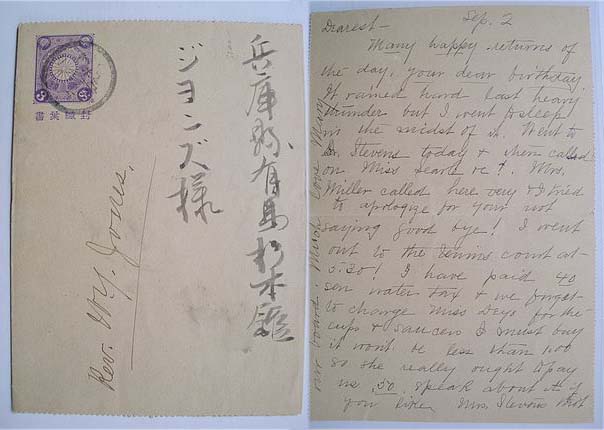 封緘葉書
兵庫縣有馬杉本館
ジヨンズ様
Rev. W.Y. Jones.
Sep. 2
Dearest—
Many happy returns of
the day, your dear birthday
It rained hard last heavy
thunder but I went to sleep
in the midst of it. Went to
Dr. Stevens today & then called
on Miss Searle &c. Mrs.
Miller called here very & I tried
to apologize for your not
saying good bye! I went
out to the tennis court at
5:30! I have paid 40
sen water tax & we forgot
to change Miss Deyo for the
cups & saucers I must buy
it wont be less than 1.00
so she really ought to pay
us .50. Speak about it if
you like. Mrs. Stevens that
our board. Much love Mary